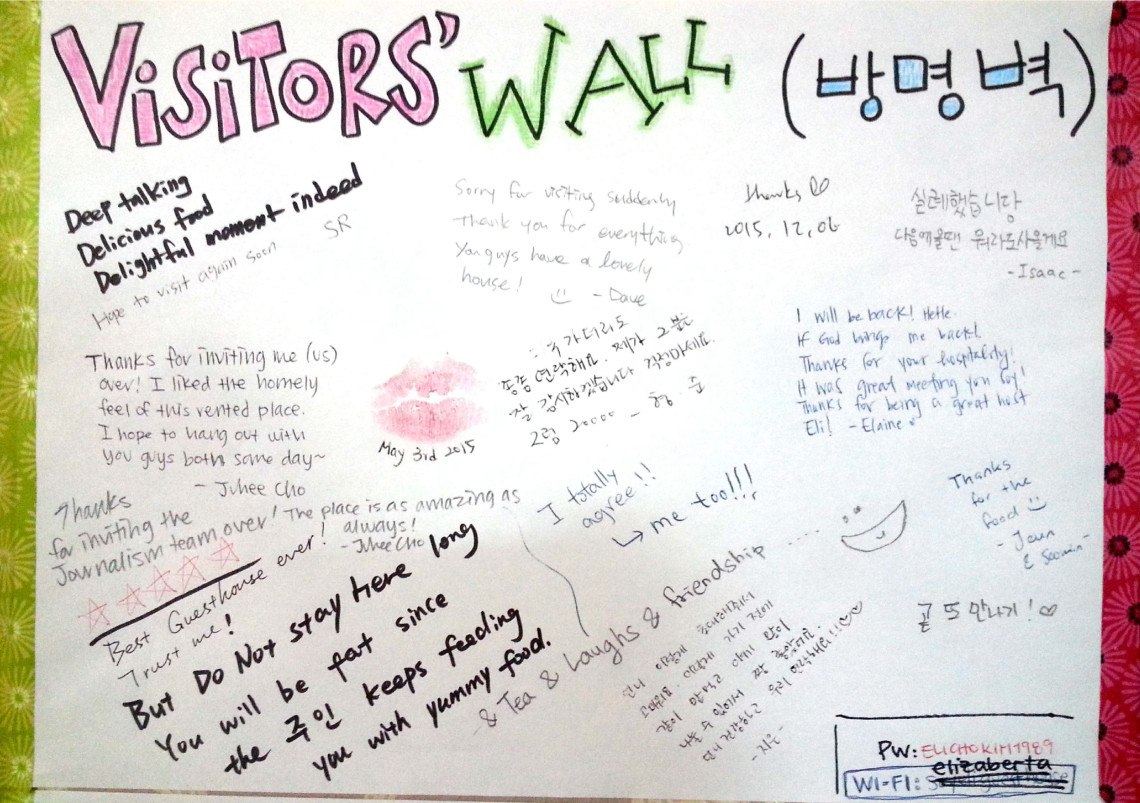 VISITORS' WALL (방명벽)
Deep talking
Delicious food
Delightful moment indeed
Hope to visit again soon
SR
Sorry for visiting suddenly
Thank you for everything
You guys have a lovely
house!
- Dave
thanks
2015, 12, 06
실례했습니다
다음에올땐 뭐라도사올게요
- Isaac -
Thanks for inviting me (us)
over! I liked the homely
feel of this rented place.
I hope to hang out with
you guys both some day~
- Juhee Cho
May 3rd 2015
가더라도
종종 연락해요. 제가 그분은
잘 감시하겠습니다 걱정마세요.
그럼 20000 - 형준
I will be back! HeHe.
If God brings me back!
Thanks for your hospitality!
It was great meeting you Soy!
Thanks for being a great host
Eli! - Elaine
Thanks
for inviting the
Journalism team over! The place is as amazing as
always!
- Juhee Cho
I totally
agree!!
me too!!!
Thanks
for the
food
- Joun
& Soomin -
Best Guesthouse ever!
Trust me!
But Do Not stay here long
You will be fat since
the 주인 keeps feeding
you with yummy food.
- & Tea & Laughs & friendship .....
언니 이렇게 초대해주셔서
고마워요. 이렇게 가기 전에
같이 밥먹고 얘기 많이
나눌 수 있어서 짱 좋았어요.
언니 건강하고 우리 연락해요!!
- 지은 -
곧 또 만나기!
PW: ELICHOKIM1989
elizaberta
WI-FI: